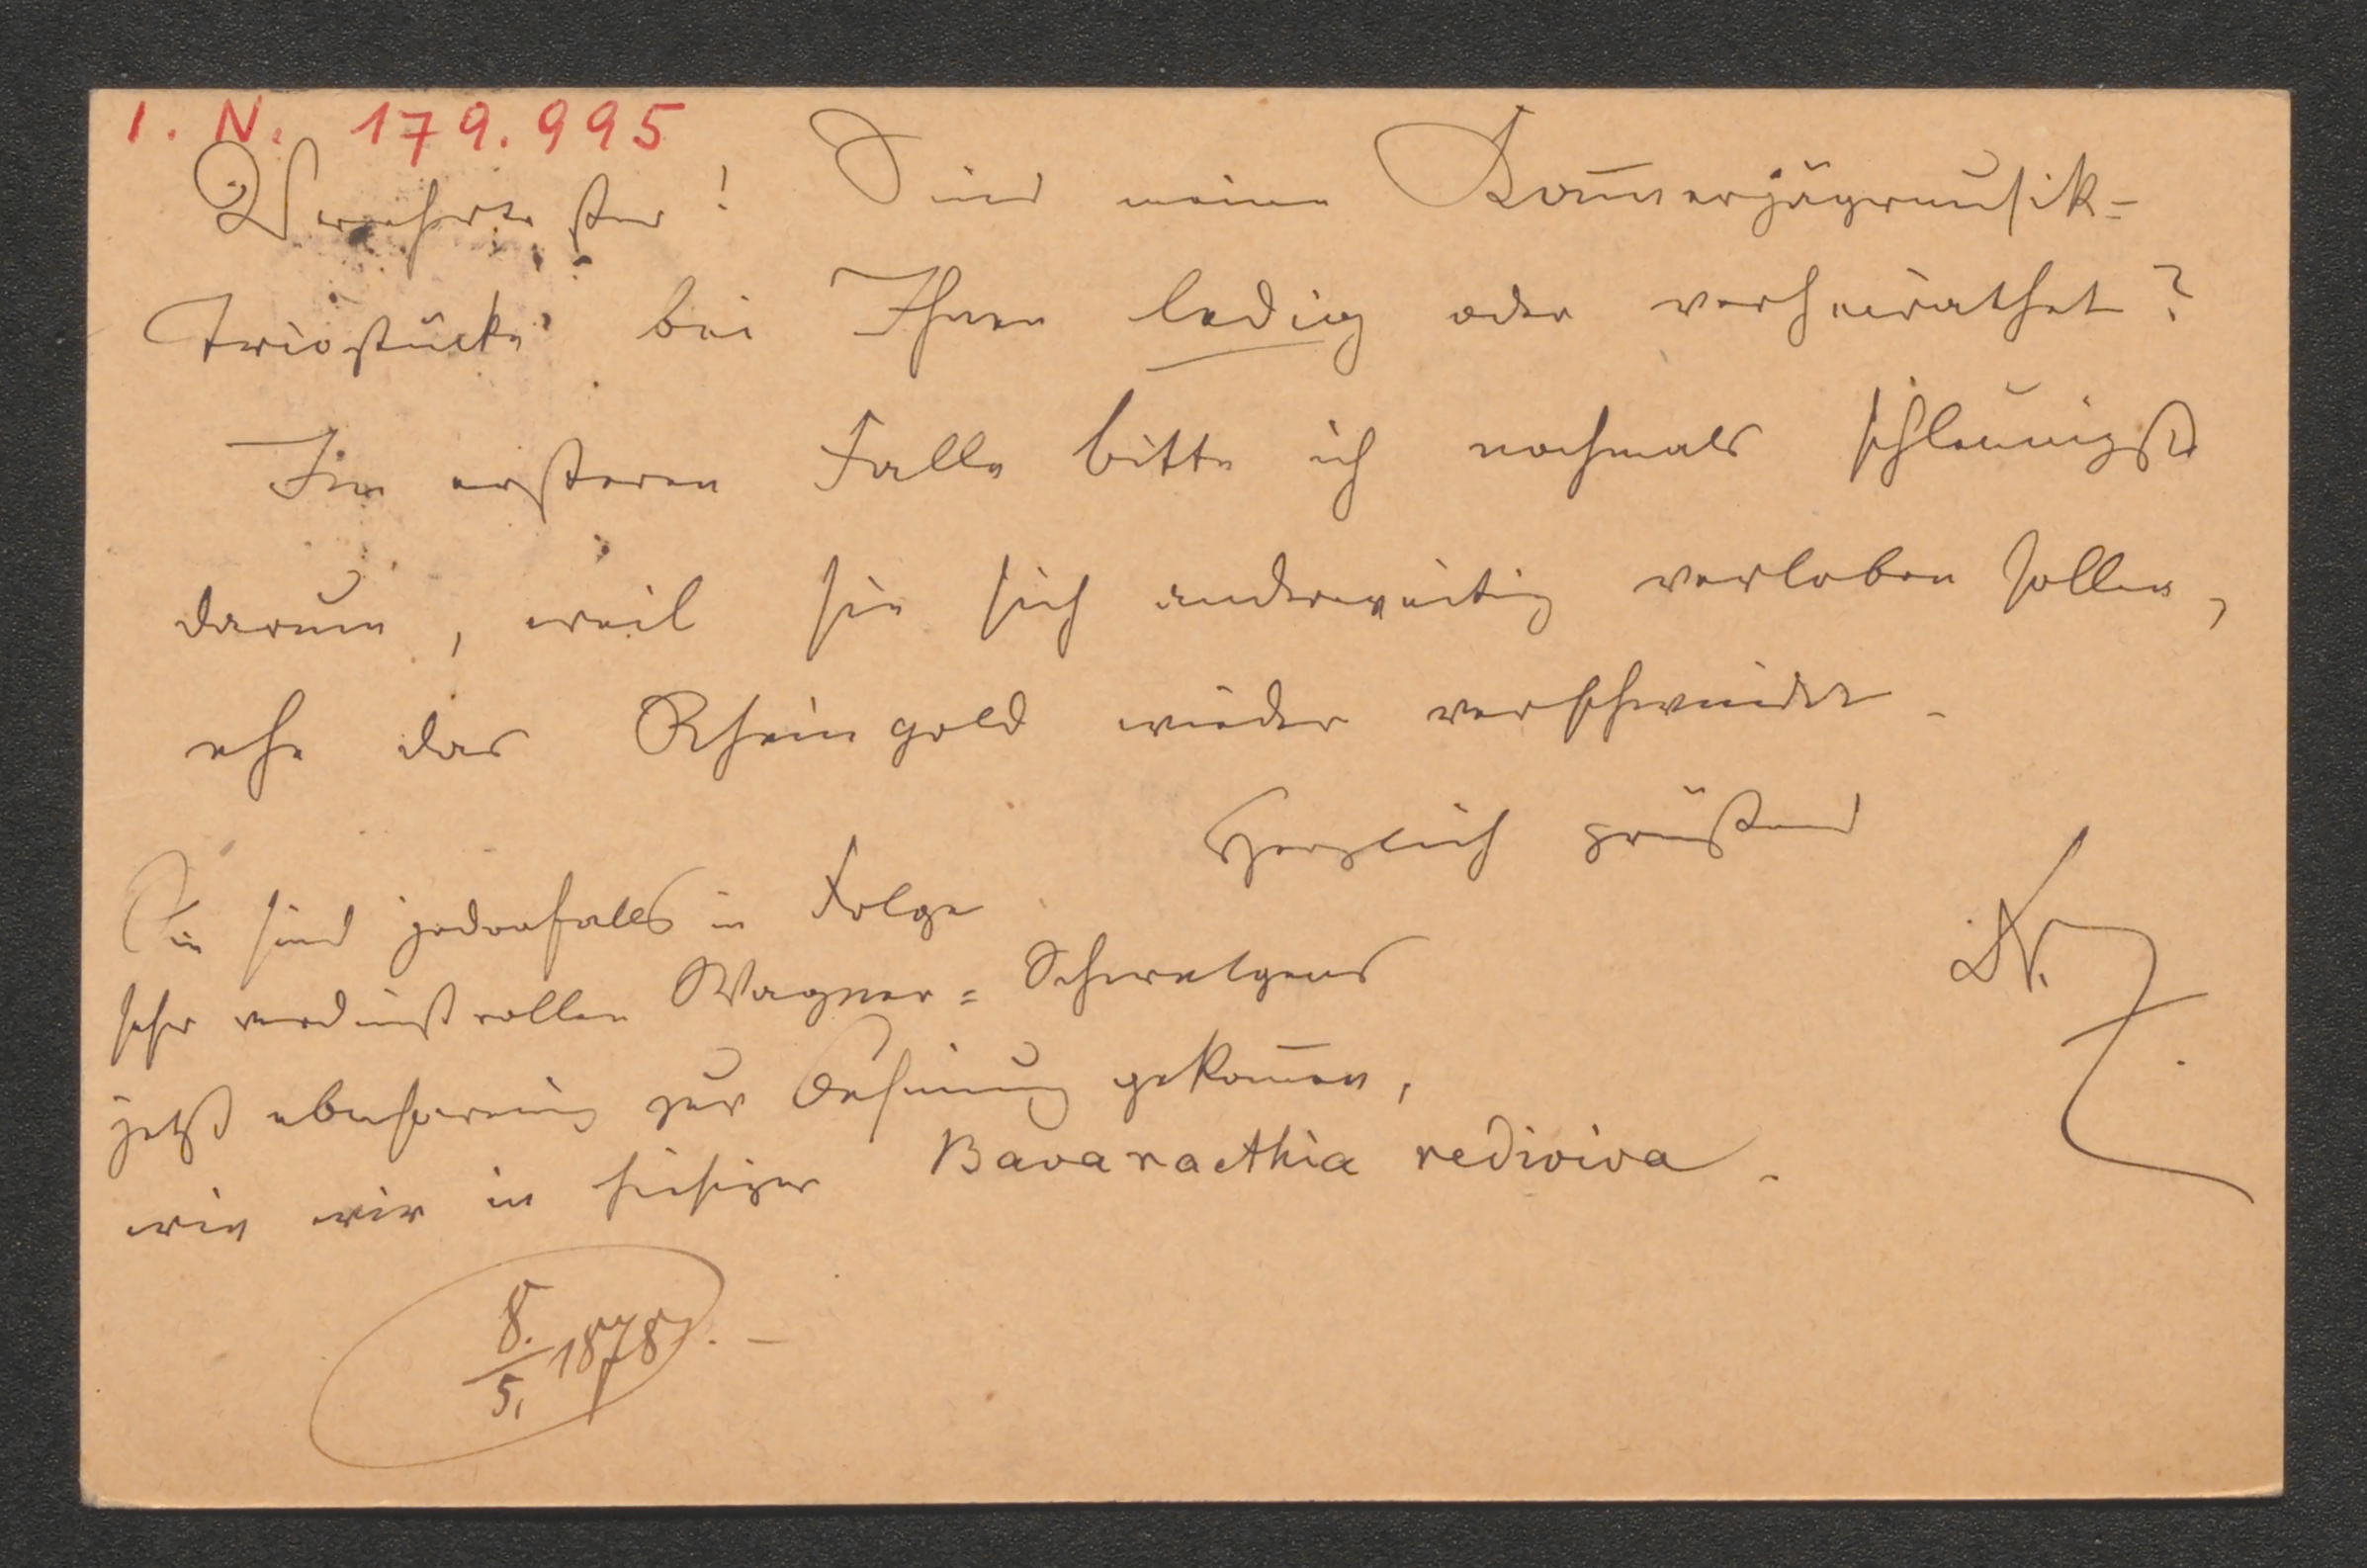 I. N. 179.995
Verehrtester! Sind meine Kam̅erjägermusik-
triostücke bei Ihnen ledig oder verheirathet?
Im ersteren Falle bitte ich nochmals schleunigst
darum, weil sie sich anderweitig verloben sollen,
ehe das Rheingold wieder verschwindet.
Herzlich grüßend
Sie sind jedenfalls in Folge
sehr verdienstvollen Wagner-Schwelgens
jetzt ebensowenig zur gekom̅en,
wie wir in hiesiger Bavaraethia rediviva.
8./5. 1878. –